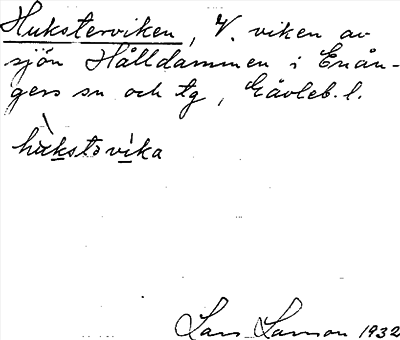 Huksterviken, V. viken av
sjön Hålldammen i Enån-
gers sn och tg, Gävleb. l.
hùkstəvìka
Lars Larson 1932